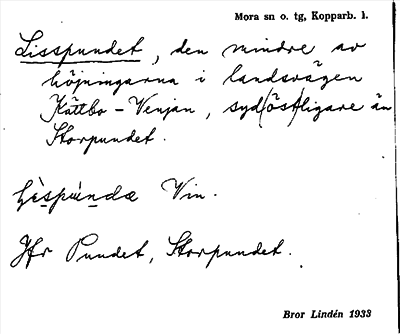 Mora sn o. tg, Kopparb. l.
Lisspundet, den mindre av
höjningarna i landsvägen
Kättbo - Venjan, syd(öst)ligare än
Storpundet.
Vin.
Jfr Pundet, Storpundet.
Bror Lindén 1933